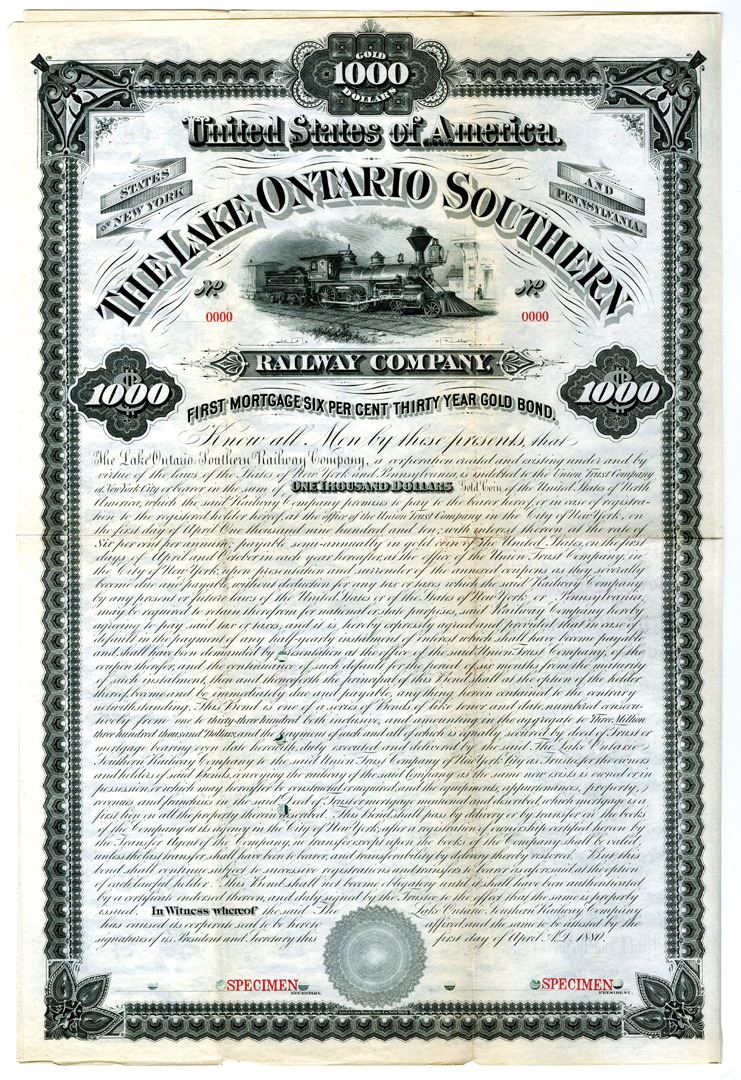 GOLD
1000
DOLLARS
United States of America.
STATES
OF NEW YORK
AND
PENNSYLVANIA.
THE LAKE ONTARIO SOUTHERN
No.
0000
No.
0000
RAILWAY COMPANY
1000
1000
FIRST MORTGAGE SIX PER CENT THIRTY YEAR GOLD BOND.
Know all Men by these presents, that
The Lake Ontario Southern Railway Company, a corporation created and existing under and by
virtue of the laws of the States of New York and Pennsylvania, is indebted to the Union Trust Company
of New York City or bearer in the sum of ONE THOUSAND DOLLARS Gold Coin of the United States of North
America, which the said Railway Company promises to pay to bearer or if in case of registra-
tion to the registered holder hereof, at the office of the Union Trust Company in the City of New York, on
the first day of April One thousand nine hundred and ten, with interest thereon at the rate of
Six per cent per annum, payable semi-annually in gold coin of the United States, on the first
days of April and October in each year hereafter, at the office of the Union Trust Company, in
the City of New York, upon presentation and surrender of the annexed coupons as they severally
become due and payable without deduction for any tax or taxes which the said Railway Company
by any present or future laws of the United States or of the States of New York or Pennsylvania
may be required to retain therefrom for national or state purposes, said Railway Company hereby
agreeing to pay said tax or taxes; and it is hereby expressly agreed and provided that in case of
default in the payment of any half yearly instalment of interest which shall have become payable
and shall have been demanded by presentation at the office of the said Union Trust Company, of the
coupon therefor, and the continuance of such default for the period of six months, from the maturity
of such instalment, then and thenceforth the principal of this Bond shall at the option of the holder
thereof become and be immediately due and payable, any thing herein contained to the contrary
notwithstanding. This Bond is one of a series of Bonds of like tenor and date numbered consecu-
tively from one to thirty three hundred both inclusive, and amounting in the aggregate to Three Million
three hundred thousand Dollars, and the payment of each and all of which is equally secured by deed of Trust or
mortgage bearing even date herewith, duly executed and delivered by the said The Lake Ontario
Southern Railway Company to the said Union Trust Company of New York City as Trustee for the owners
and holders of said Bonds, conveying the railway of the said Company as the same now exists is owned or in
possession or which may hereafter be constructed or acquired, and the equipments, appurtenances, property,
revenues and franchises in the said deed of Trust or mortgage mentioned and described, which mortgage is a
first lien on all the property therein described. This Bond shall pass by delivery or by transfer on the books
of the Company at its agency in the City of New York, after a registration of ownership certified hereon by
the Transfer Agent of the Company, no transfer except upon the books of the Company shall be valid,
unless the last transfer shall have been to bearer, and transferability by delivery thereby restored. But this
bond shall continue subject to successive registrations and transfers to bearer as aforesaid at the option
of each lawful holder. This Bond shall not become obligatory until it shall have been authenticated
by a certificate endorsed hereon, and duly signed by the Trustee, to the effect that the same is properly
issued. In Witness whereof the said The Lake Ontario Southern Railway Company
has caused its corporate seal to be hereto affixed and the same to be attested by the
signatures of its President and Secretary this first day of April, A.D. 1880.
SPECIMEN
SECRETARY.
SPECIMEN
PRESIDENT.